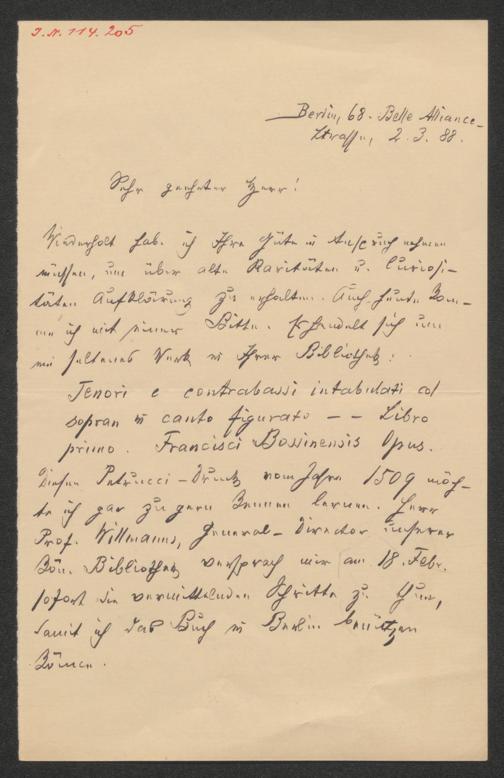 J.N. 114.205
Berlin, 68. Belle Alliance-
Strasse, 2.3.88.
Sehr geehrter Herr!
Wiederholt habe ich Ihre Güte in Anspruch nehmen
müssen, um über alte Raritäten u. Curiosi-
täten Aufklärung zu erhalten. Auch heute kom-
me ich mit einer Bitte. Es handelt sich um
ein seltenes Werk in Ihrer Bibliothek:
Tenori e contrabassi intabulati col
sopran in canto figurato -- Libro
primo. Francisci Bossinensis Opus.
Diesen Petrucci-Druck vom Jahre 1509 möch-
te ich gar zu gern kennen lernen. Herr
Prof. Willmanns, General-Director unserer
Kön. Bibliothek versprach mir am 18. Febr.
sofort die vermittelnden Schritte zu thun,
damit ich das Buch in Berlin benützen
könne.